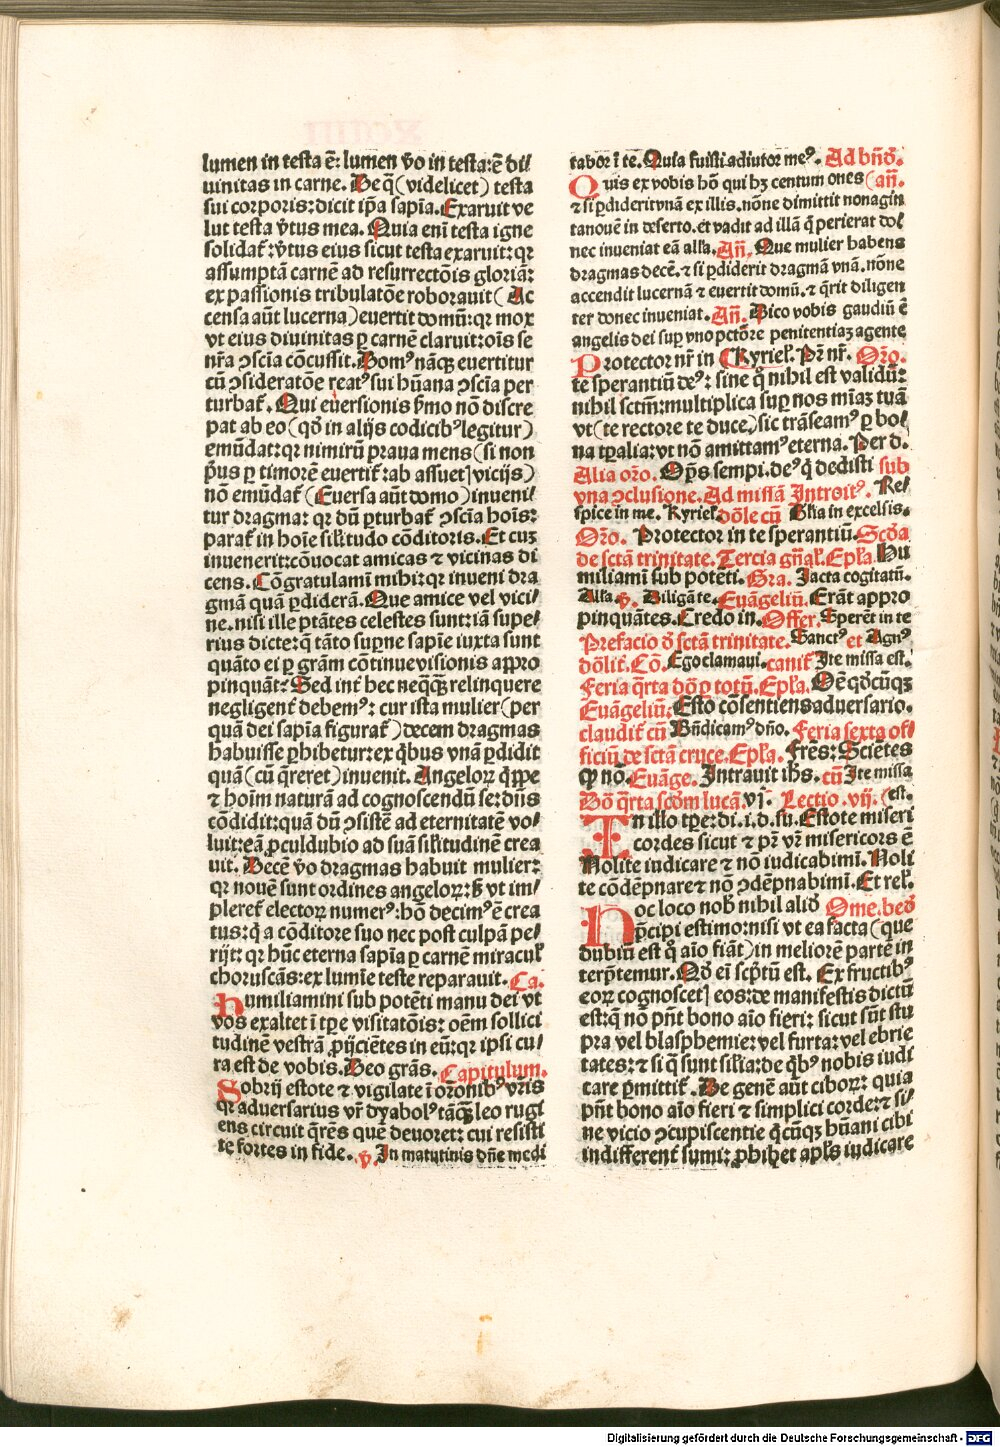 lumen in testa ē: lumen v̄o in testa: ē di/
uinitas in carne. De q̄ (videlicet) testa
sui corporis: dicit ip̄a sapīa. Exaruit ve
lut testa v̄tus mea. Quia eni testa igne
solidat᷑: v̄tus eius sicut testa exaruit: qꝛ
assumptā carnē ad resurrectōis gloriā:
ex passionis tribulatōe roborauit (Ac
censa aūt lucerna) euertit domū: qꝛ mox
vt eius diuinitas ꝑ carnē claruit: oīs se
nr̄a ꝯscīa cōcussit. Domꝰ nāqꝫ euertitur
cū ꝯsideratōe reatꝰ sui hūana ꝯscīa per
turbat᷑. Qui euersionis ẜmo nō discre
pat ab eo (qd̄ in alijs codicibꝰ legitur)
emūdat: qꝛ nimirū praua mens (si non
prius ꝑ timorē euertit᷑: ab assuetꝭ vicijs)
nō emūdat᷑ (Euersa aūt domo) inueni/
tur dragma: qꝛ dū ꝑturbat᷑ ꝯscīa hoīs:
parat᷑ in hoīe sil̄itudo cōditoris. Et cuꝫ
inuenerit: cōuocat amicas ⁊ vicinas di
cens. Cōgratulamī mihi: qꝛ inueni dra
gmā quā ꝑdiderā. Que amice vel vici/
ne. nisi ille ptātes celestes sunt: iā supe/
rius dicte: q̄ tāto supne sapīe iuxta sunt
quāto ei ꝑ grām cōtinue visionis appro
pinquāt: Sed int᷑ hec neqꝫq̄ꝫ relinquere
negligent᷑ debemꝰ: cur ista mulier (per
quā dei sapīa figurat᷑) decem dragmas
habuisse ꝑhibetur: ex qͥbus vnā ꝑdidit
quā (cū q̄reret) inuenit. Angeloꝝ q̄ppe
⁊ hoīm naturā ad cognoscendū se: dn̄s
cōdidit: quā dū ꝯsistē ad eternitatē vo/
luit: eā ꝓculdubio ad suā sil̄itudinē crea
uit. Decē v̄o dragmas habuit mulier:
qꝛ nouē sunt ordines angeloꝝ: sꝫ vt im/
pleret᷑ electoꝝ numerꝰ: hō decimꝰ ē crea
tus: q̄ a cōditore suo nec post culpā pe/
rijt: qꝛ hūc eterna sapīa ꝑ carnē miracul̄
choruscās: ex lumīe teste reparauit. Ca.
Humiliamini sub potēti manu dei vt
vos exaltet ī tꝑe visitatōis: oēm sollici
tudinē vestrā ꝓijciētes in eū: qꝛ ipsi cu/
ra est de vobis. Deo grās. Capitulum.
Sobrij estote ⁊ vigilate ī orōnibꝰ vr̄is
qꝛ aduersarius vr̄ dyabolꝰ tāqꝫ leo rugi
ens circuit q̄rēs quē deuoret: cui resisti
te fortes in fide. ℣. In matutinis dn̄e medi
tabor ī te. Quia fuisti adiutor meꝰ. Ad bn̄d̄.
Quis ex vobis hō qui hꝫ centum oues (an̄.
⁊ si ꝑdiderit vnā ex illis. nōne dimittit nonagin
tanouē in deserto. et vadit ad illā q̄ perierat do/
nec inueniat eā all̄a. An̄. Que mulier habens
dragmas decē. ⁊ si ꝑdiderit dragmā vnā. nōne
accendit lucernā ⁊ euertit domū. ⁊ q̄rit diligen
ter donec inueniat. An̄. Dico vobis gaudiū ē
angelis dei suꝑ vno pctōre penitentiaꝫ agente
Protector nr̄ in (Kyriel̄. Pr̄ nr̄. Oro.
te sperantiū deꝰ: sine qͦ nihil est validū:
nihil sctm̄: multiplica suꝑ nos mīaꝫ tuā
vt (te rectore te duce) sic trāseamꝰ ꝑ bo/
na tꝑalia: vt nō amittamꝰ eterna. Per d.
Alia oro. Op̄s sempi. deꝰ q̄ dedisti sub
vna ꝯclusione. Ad missā Introitꝰ. Re/
spice in me. Kyriel̄. dōle cū Gl̄ia in excelsis.
Oro. Protector in te sperantiū. Scd̄a
de sctā trinitate. Tercia gn̄al̄. Epl̄a. Hu
miliami sub potēti. Gra. Iacta cogitatū.
All̄a. ℣. Diligā te. Euāgeliū. Erāt appro
pinquātes. Credo in. Offer. Sperēt in te
Prefacio d̄ sctā trinitate. Sanctꝰ et Agnꝰ
dōlit. Cō. Ego clamaui. canit᷑ Ite missa est.
Feria q̄rta dō ꝑ totū. Epl̄a. Oē qd̄cūqꝫ
Euāgeliū. Esto cōsentiens aduersario.
claudit᷑ cū Bn̄dicamꝰ dn̄o. Feria sexta of/
ficiū de sctā cruce. Epl̄a. Fr̄es: Sciētes
qꝛ nō. Euāge. Intrauit ih̄s. cū Ite missa
Dō q̄rta scd̄m lucā. vj. Lectio. vij. (est.
In illo tꝑe: di. i. d. su. Estote miseri
cordes sicut ⁊ pr̄ vr̄ misericors ē
Nolite iudicare ⁊ nō iudicabimī. Noli
te cōdēpnare ⁊ nō ꝯdēpnabimī. Et rel̄.
Hoc loco nob̄ nihil aliđ Ome. bed̄
p̄cipi estimo: nisi vt ea facta (que
dubiū est qͦ aīo fiāt) in meliorē partē in
terp̄temur. Qd̄ ei sc̄ptū est. Ex fructibꝰ
eoꝝ cognoscetꝭ eos: de manifestis dictū
est: q̄ nō pn̄t bono aīo fieri: sicut sūt stu
pra vel blasphemie: vel furta: vel ebrie
tates: ⁊ si q̄ sunt sil̄ia: de qͥbꝰ nobis iudi
care ꝑmittit᷑. De genē aūt ciboꝝ: quia
pn̄t bono aīo fieri ⁊ simplici corde: ⁊ si/
ne vicio ꝯcupiscentie q̄cūqꝫ hūani cibi
indifferent᷑ sumi: ꝓhibet apl̄s iudicare
Digitalisierung gefördert durch die Deutsche Forschungsgemeinschaft - DFG